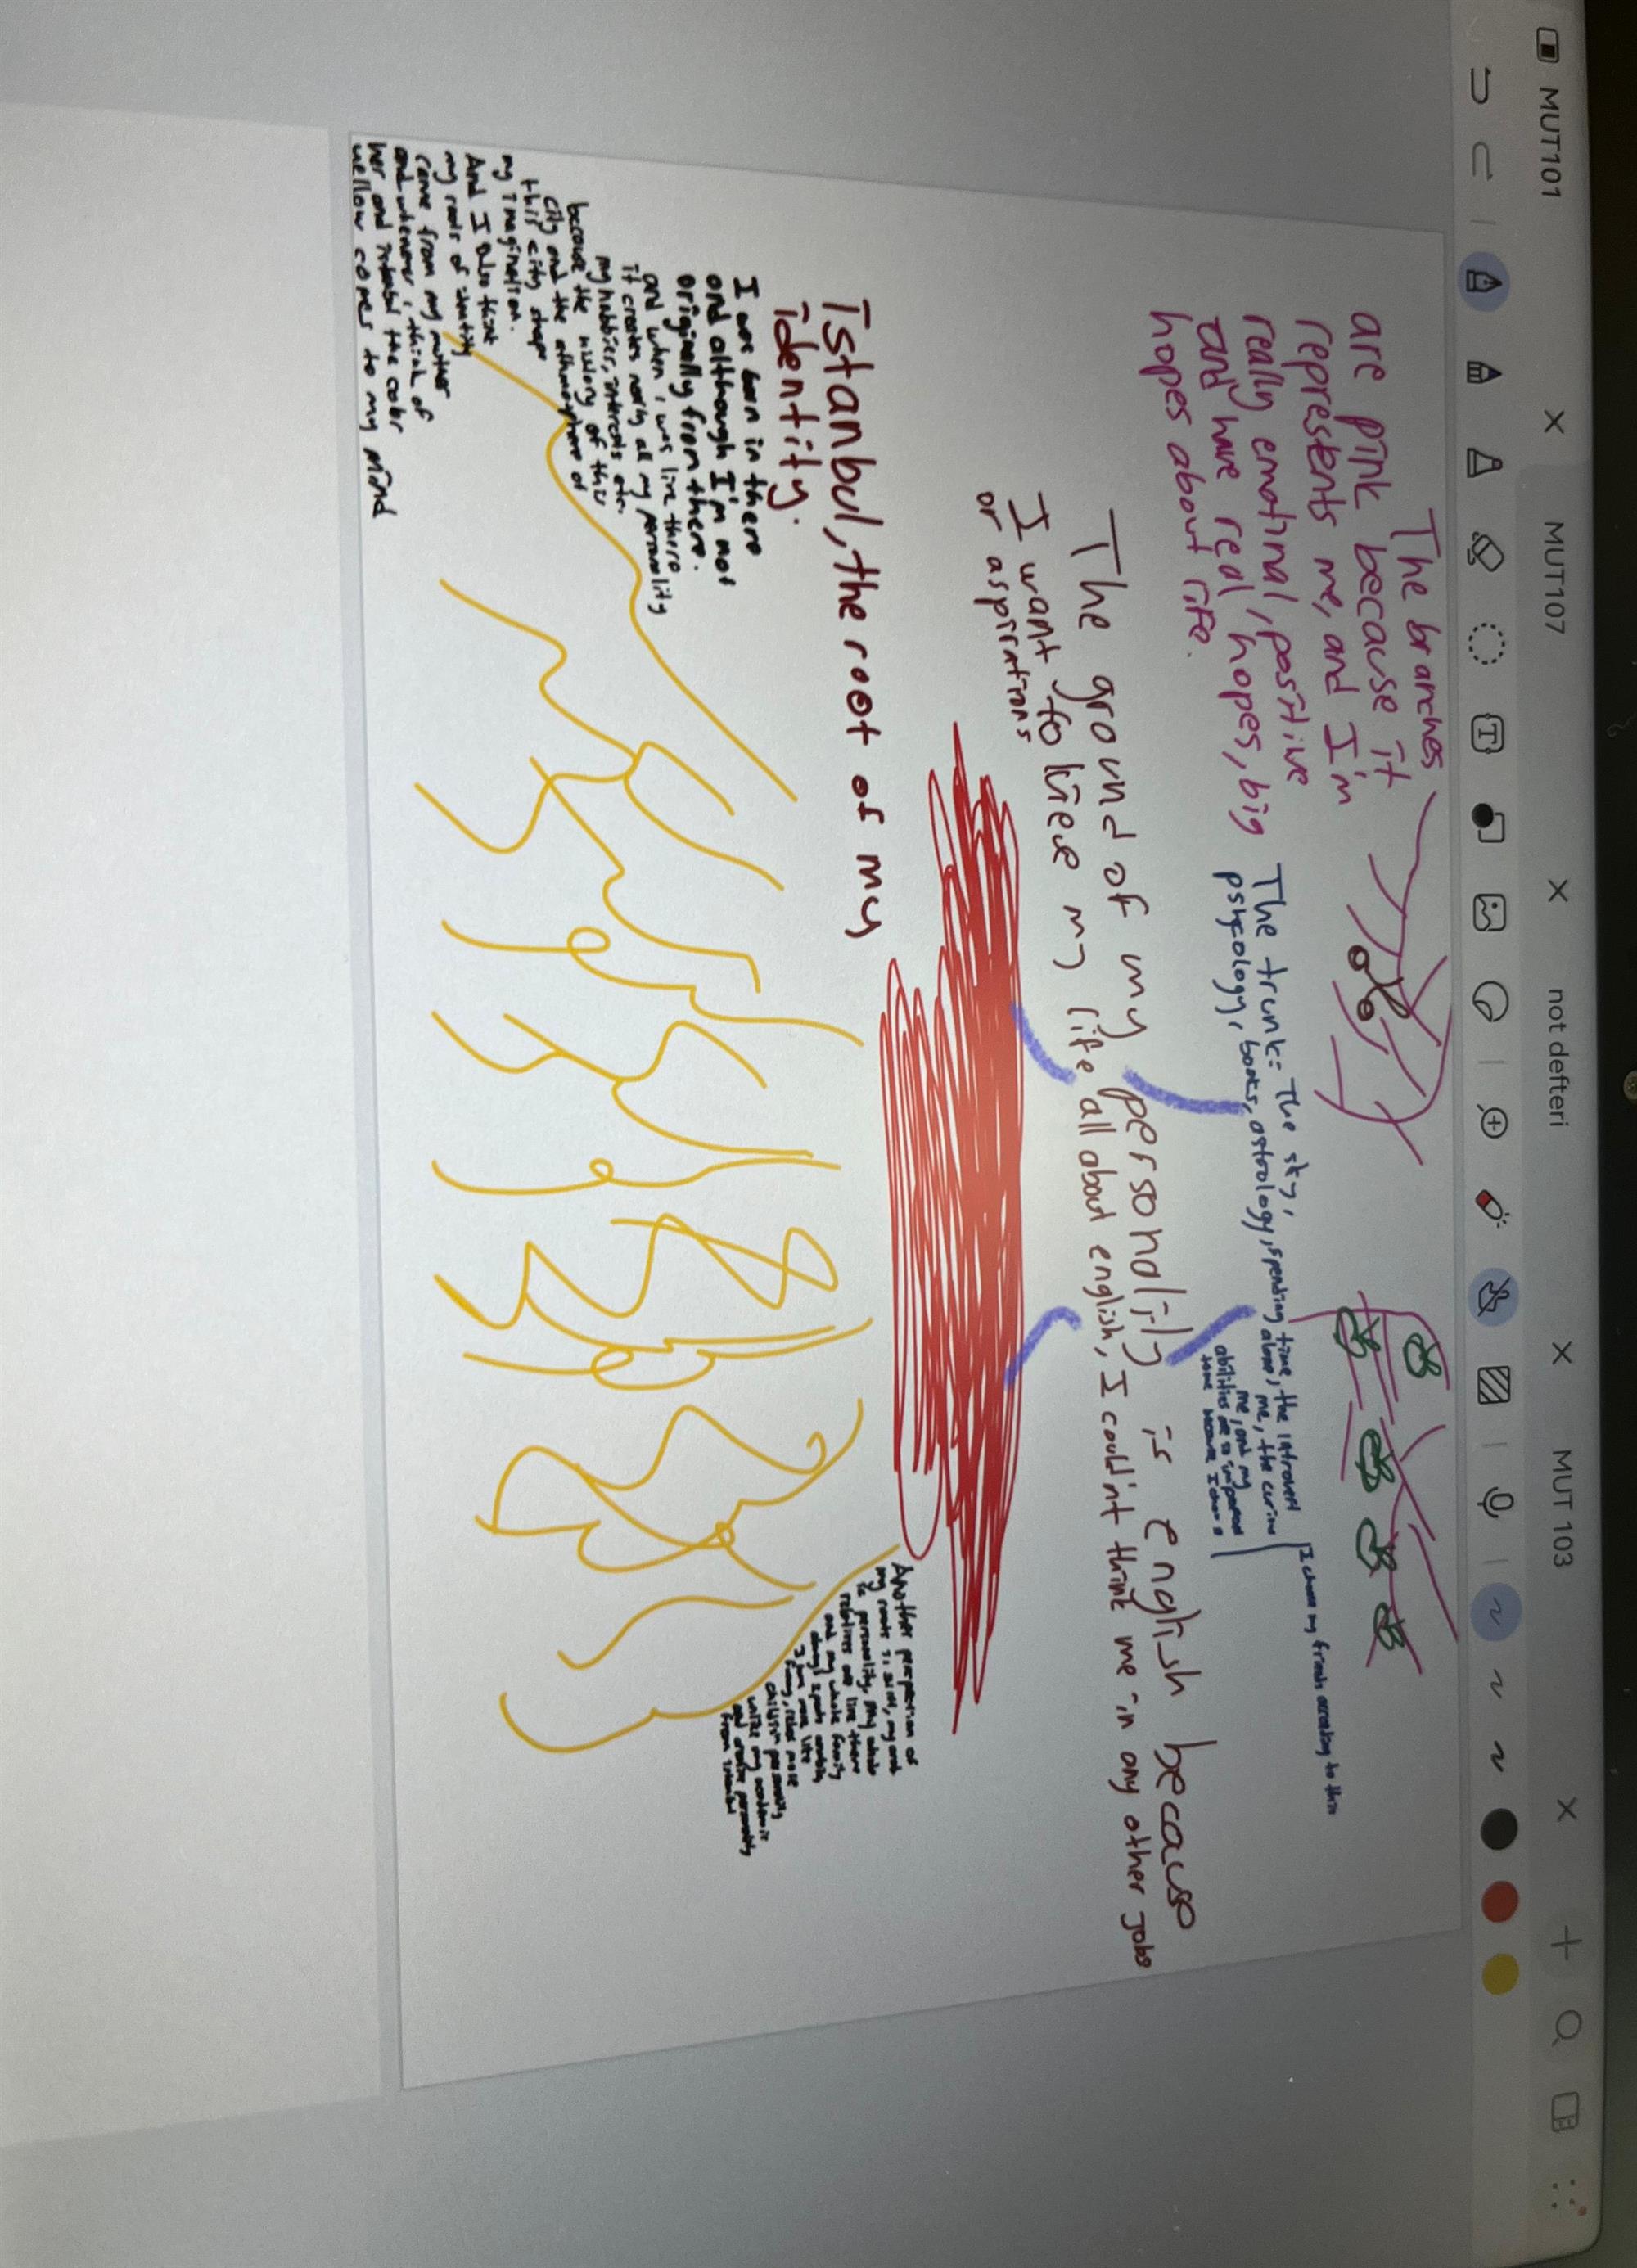 MUT101
MUT107
not defteri
MUT 103
The branches
are pink because it
represents me, and I'm
really emotinal, positive
and have real hopes, big
hopes about life.
The trunk= The sky,
psycology, books, astrology, spending time, the introvert
alone, me, the curius
me, and my
abilities are so important
I choose my friends according to this
The ground of my personality is english because
I want to liree my life all about english, I could'nt think me in any other jobs
or aspirations
İstanbul, the root of my
identity.
I was born in there
and although I'm not
originally from there.
and when i was live there
it creates nearly all my personality
my hobbies, interests etc.
because the history of this
city and the athmosphere of
this city shape
my imagination.
And I also think
my roots of identity
came from my mother
and whenever i think of
her and istanbul the color
yellow comes to my mind
Another of
my roots is
personality, my whole
relatives are live there
and my whole family
I am more like
funny, relax more
personality
unlike my
and personality
from istanbul